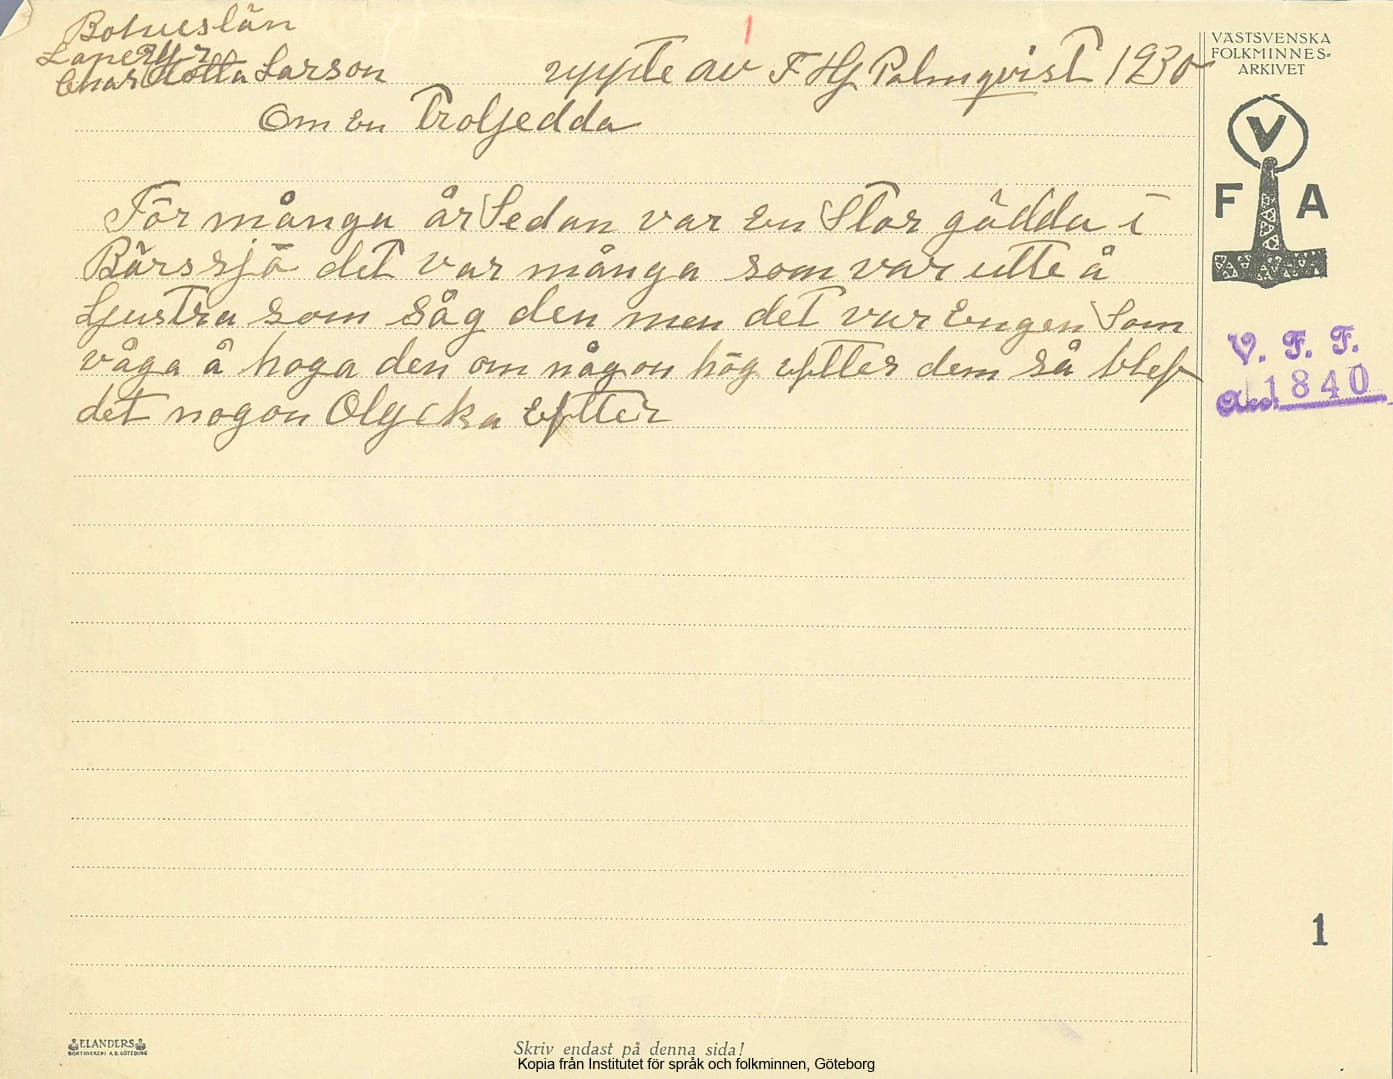 Bohuslän
Charlotta Larson
uppte av F Hj Palmqvist 1930
1
Om en Troljedda
För många år sedan var en Stor gädda i
Bärssjö det var många som var utte å
Ljustra som såg den men det var Engen Som
våga å hoga den om någon hög eftter dem så blef
det nogon Olycka Eftter
VÄSTSVENSKA
FOLKMINNES-
ARKIVET
V
F A
V. F. F.
Acc. 1840
1
ELANDERS
BOKTRYCKERI A.B. GÖTEBORG
Skriv endast på denna sida!
Kopia från Institutet för språk och folkminnen, Göteborg